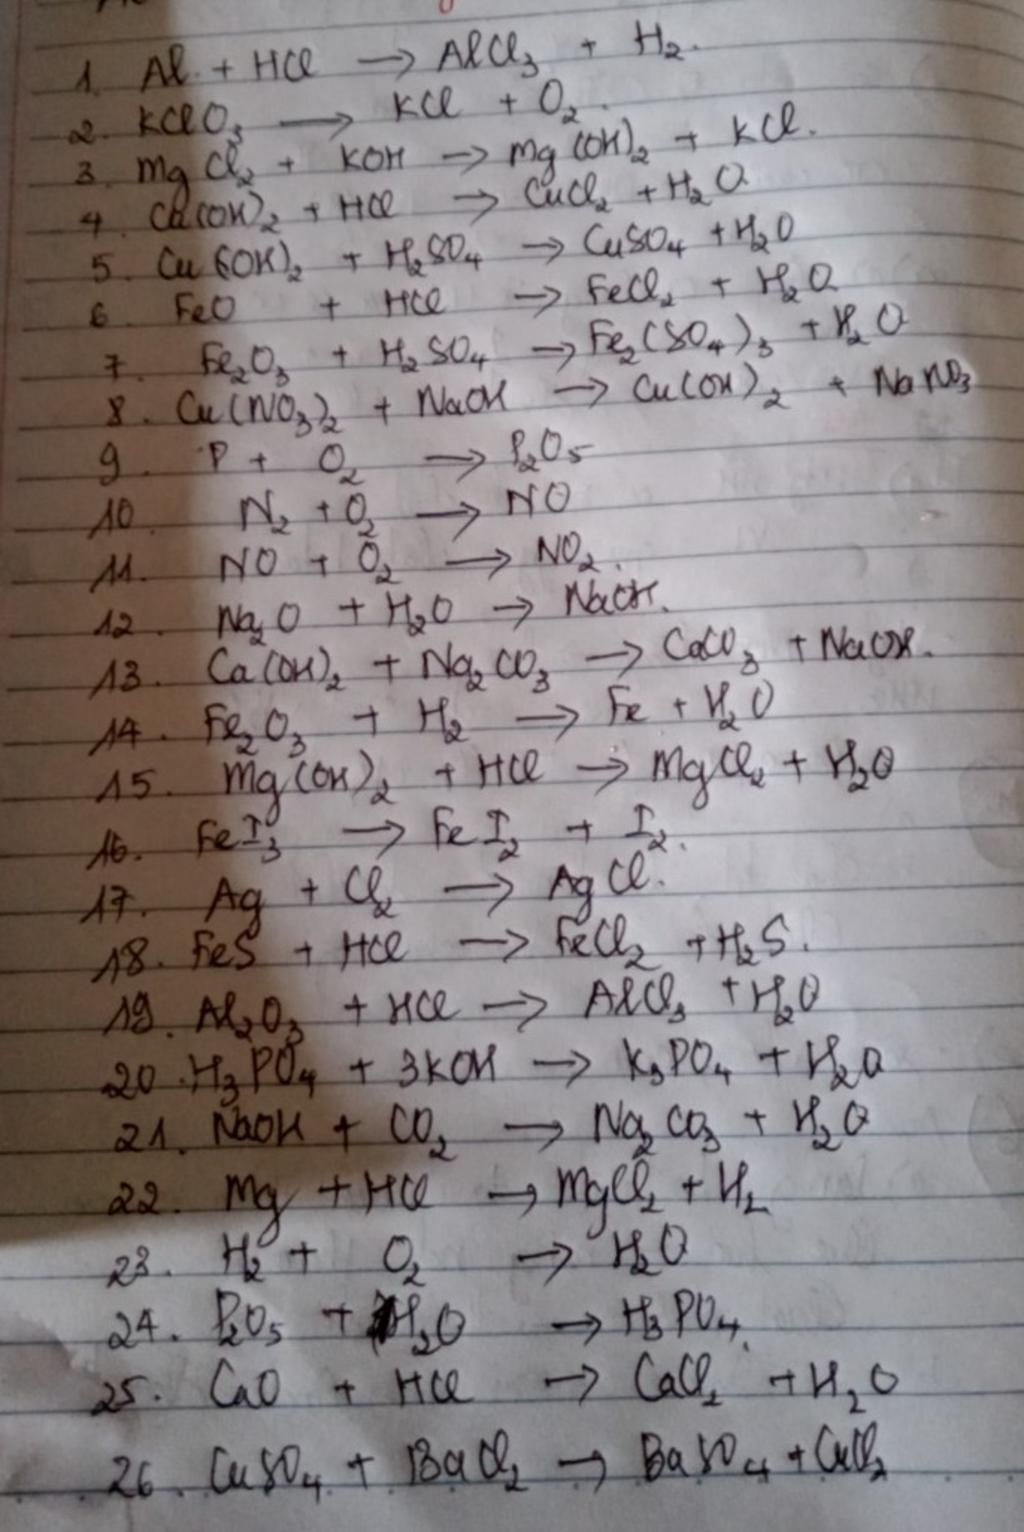 1. Al + HCl → AlCl₃ + H₂.
2. KClO₃ → KCl + O₂.
3. MgCl₂ + KOH → Mg(OH)₂ + KCl.
4. Ca(OH)₂ + HCl → CuCl₂ + H₂O
5. Cu(OH)₂ + H₂SO₄ → CuSO₄ + H₂O
6. FeO + HCl → FeCl₂ + H₂O
7. Fe₂O₃ + H₂SO₄ → Fe₂(SO₄)₃ + H₂O
8. Cu(NO₃)₂ + NaOH → Cu(OH)₂ + NaNO₃
9. P + O₂ → P₂O₅
10. N₂ + O₂ → NO
11. NO + O₂ → NO₂.
12. Na₂O + H₂O → NaOH.
13. Ca(OH)₂ + Na₂CO₃ → CaCO₃ + NaOH.
14. Fe₂O₃ + H₂ → Fe + H₂O
15. Mg(OH)₂ + HCl → MgCl₂ + H₂O
16. FeI₃ → FeI₂ + I₂.
17. Ag + Cl₂ → AgCl.
18. FeS + HCl → FeCl₂ + H₂S.
19. Al₂O₃ + HCl → AlCl₃ + H₂O
20. H₃PO₄ + 3KOH → K₃PO₄ + H₂O
21. NaOH + CO₂ → Na₂CO₃ + H₂O
22. Mg + HCl → MgCl₂ + H₂
23. H₂ + O₂ → H₂O
24. P₂O₅ + H₂O → H₃PO₄.
25. CaO + HCl → CaCl₂ + H₂O
26. CuSO₄ + BaCl₂ → BaSO₄ + CuCl₂